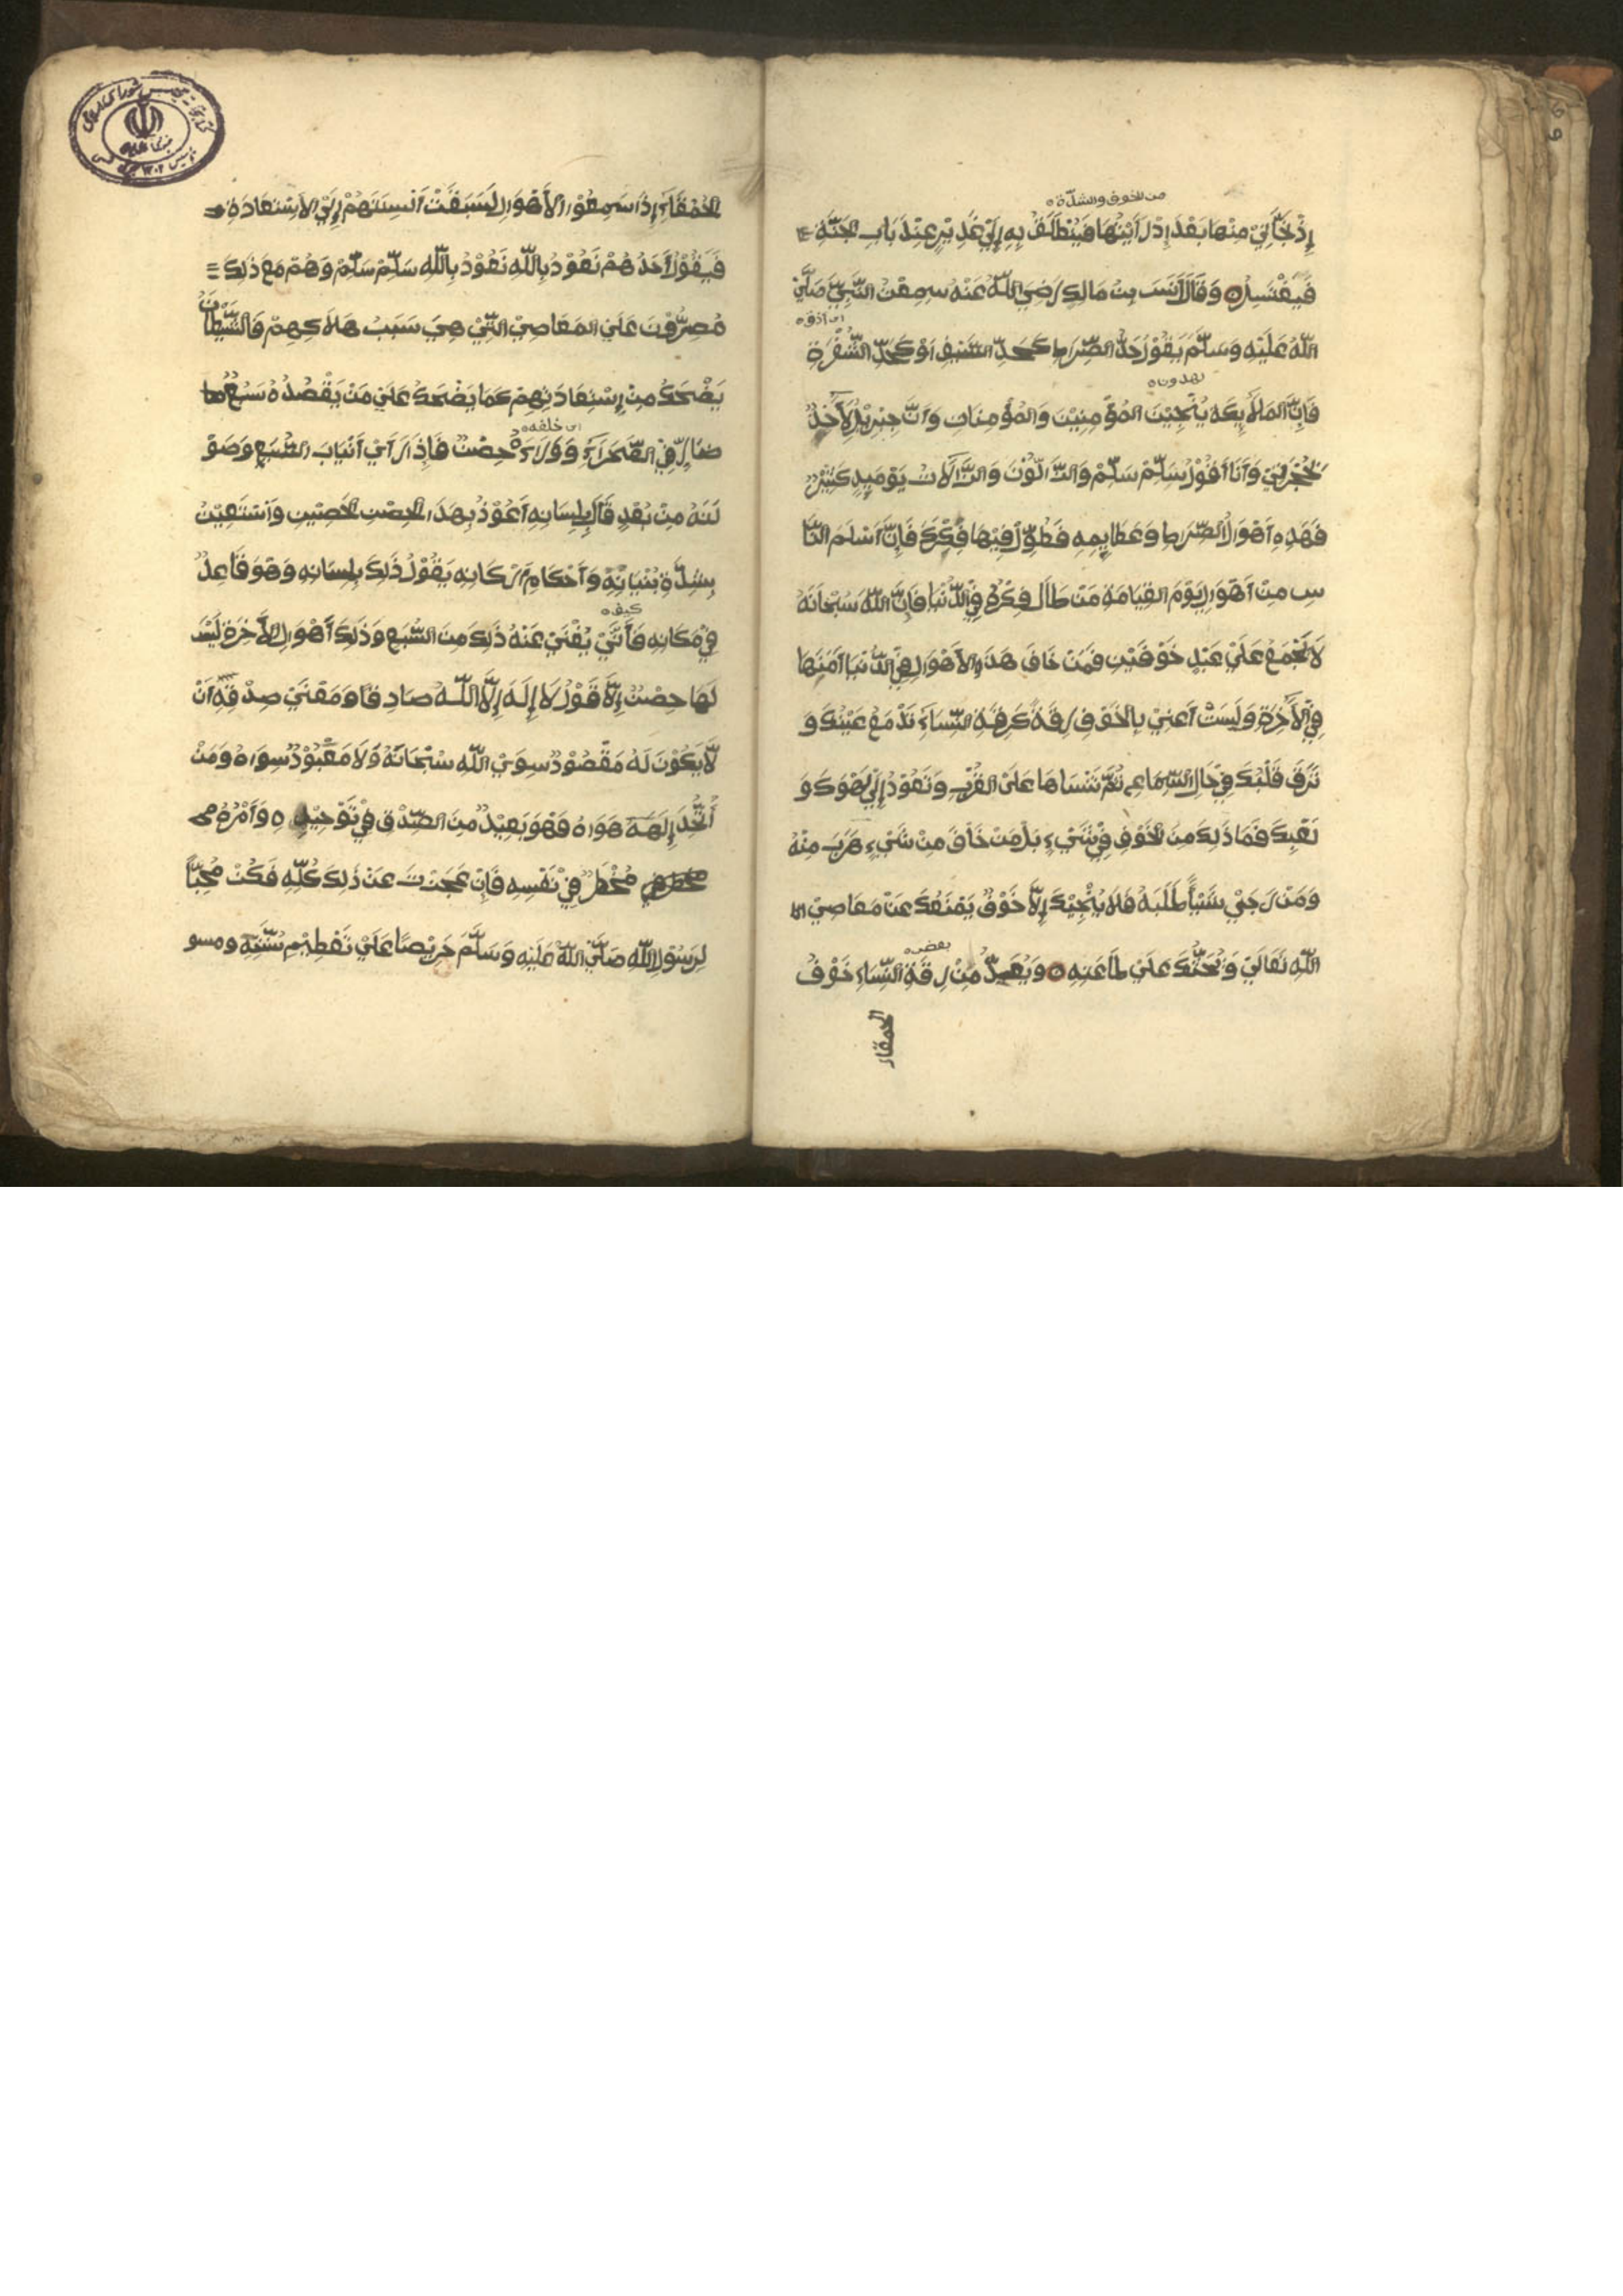 من الخوف والشدة ه
إِذْ نَجَّانِيْ مِنْهَا بَعْدَ إِذْ رَاَيْتُهَا فَيَنْطَلِقُ بِهِ إِلَيْ غَدِيْرٍ عِنْدَ بَابِ الجَنَّةِ
فَيَغْتَسِلُ ه وَقَالَ اَنَسَ بِنْ مَالِكٍ رَضِيَ اللّٰهُ عَنْهُ سَمِعْتُ النَّبِيَّ صَلَّيَ
اي ادق ه
اللّٰهُ عَلَيْهِ وَسَلَّمَ يَقُوْلُ حَدُّ الصِّرَاطِ كَحَدِّ السَّيْفِ اَوْ كَحَدِّ الشَّفْرَةِ
يهدون ه
فَاِنَّ المَلَائِكَةَ يُنْجِيْنَ المُؤْمِنِيْنَ وَالمُؤْمِنَاتِ وَاَنَّ جِبْرِيْلَ لَاٰخِذٌ
بِحُجْزَتِيْ وَاَنَا اَقُوْلُ سَلِّمْ سَلِّمْ وَالزَّالُّوْنَ وَالزَّالَّاتُ يَوْمَئِذٍ كَثِيْرٌ
فَهَذِهِ اَهْوَالُ الصِّرَاطِ وَعَظَايِمِهِ فَطَوِّلْ فِيْهَا فِكْرَكَ فَاِنَّ اَسْلَمَ النَّا
سِ مِنْ اَهْوَالِ يَوْمَ القِيَامَةِ مَنْ طَالَ فِكْرُهُ فِيْ الدُّنْيَا فَاِنَّ اللّٰهَ سُبْحَانَهُ
لَا يَجْمَعُ عَلَيْ عَبْدٍ خَوْفَيْنِ فَمَنْ خَافَ هَذِهِ الاَهْوَالِ فِيْ الدُّنْيَا اَمَنَهَا
فِيْ الاٰخِرَةِ وَلَيْسَتْ اَعْنِيْ بِالخَوْفِ رِقَةً كَرِقَّةِ النِّسَاءِ تَدْمَعُ عَيْنُكَ وَ
تَرِقَّ قَلْبُكَ فِيْ حَالِ السِّمَاعِ ثُمَّ تَنْسَاهَا عَلَيْ القُرْبِ وَتَعُوْدُ إِلَيْ لَهْوِكَ وَ
لَعْبِكَ فَمَا ذَلِكَ مِنْ الخَوْفِ فِيْ شَيْءٍ بَلْ مَنْ خَافَ مِنْ شَيْءٍ هَرَبَ مِنْهُ
وَمَنْ رَجَيْ شَيْئاً طَلَبَهُ فَلَا يُنْجِيْكَ إِلَّا خَوْفٌ يَمْنَعُكَ عَنْ مَعَاصِيْ
بعض ه
اللّٰهِ تَعَالَيْ وَيَحُثُّكَ عَلَيْ طَاعَتِهِ ه وَيُعَدُّ مِنْ رِقَةِ النِّسَاءِ خَوْفُ
الحمقاء
الحُمْقَاءِ إِذَا سَمِعُوْا الاَهْوَالِ لَسَبَقَتْ اَلْسِنَتَهُمْ إِلَيْ الاِسْتِعَاذَةِ
فَيَقُوْلُ اَحَدُهُمْ نَعُوْذُ بِاللّٰهِ نَعُوْذُ بِاللّٰهِ سَلِّمْ سَلِّمْ وَهُمْ مَعَ ذَلِكَ
مُصِرُّوْنَ عَلَيْ المَعَاصِيْ الَّتِيْ هِيَ سَبَبُ هَلَاكِهِمْ فَالشَّيْطَانُ
يَضْحَكُ مِنْ اِسْتِعَاذَتِهِمْ كَمَا يَضْحَكُ عَلَيْ مَنْ يَقْصُدُهُ سَبُعٌ
اي خلفه ه
ضَارٍّ فِيْ الصَّحْرَاءِ وَوَرَاءَهُ حِصْنٌ فَاِذَا رَاَيْ اَنْيَابَ السَّبُعِ وَصَوْ
لَتَهُ مِنْ بُعْدٍ قَالَ بِلِسَانِهِ اَعُوْذُ بِهَذَا الحِصْنِ الحَصِيْنِ وَاَسْتَعِيْنُ
بِشِدَّةِ بُنْيَانِهِ وَاَحْكَامِ اَرْكَانِهِ يَقُوْلُ ذَلِكَ بِلِسَانِهِ وَهُوَ قَاعِدٌ
كيف ه
فِيْ مَكَانِهِ فَاَنَّيْ يُغْنَيْ عَنْهُ ذَلِكَ مِنَ السَّبُعِ وَذَلِكَ اَهْوَالِ الاٰخِرَةِ لَيْسَ
لَهَا حِصْنٌ إِلَّا قَوْلُ لَا إِلَهَ إِلَّا اللّٰهُ صَادِقًا وَمَعْنَيْ صِدْقِهِ اَنْ
لَّا يَكُوْنَ لَهُ مَقْصُوْدٌ سِوَيْ اللّٰهِ سُبْحَانَهُ وَلَا مَعْبُوْدٌ سِوَاهُ وَمَنْ
اتَّخَذَ إِلَهَهُ هَوَاهُ فَهُوَ بَعِيْدٌ مِنَ الصِّدْقِ فِيْ تَوْحِيْدِهِ وَاَمْرُهُ
مُخْطِرٌ فِيْ نَفْسِهِ فَاِنْ عَجَزْتَ عَنْ ذَلِكَ كُلِّهِ فَكُنْ مُحِبًّا
لِرَسُوْلِ اللّٰهِ صَلَّيَ اللّٰهُ عَلَيْهِ وَسَلَّمَ حَرِيْصًا عَلَيْ تَعْظِيْمِ سُنَّتِهِ